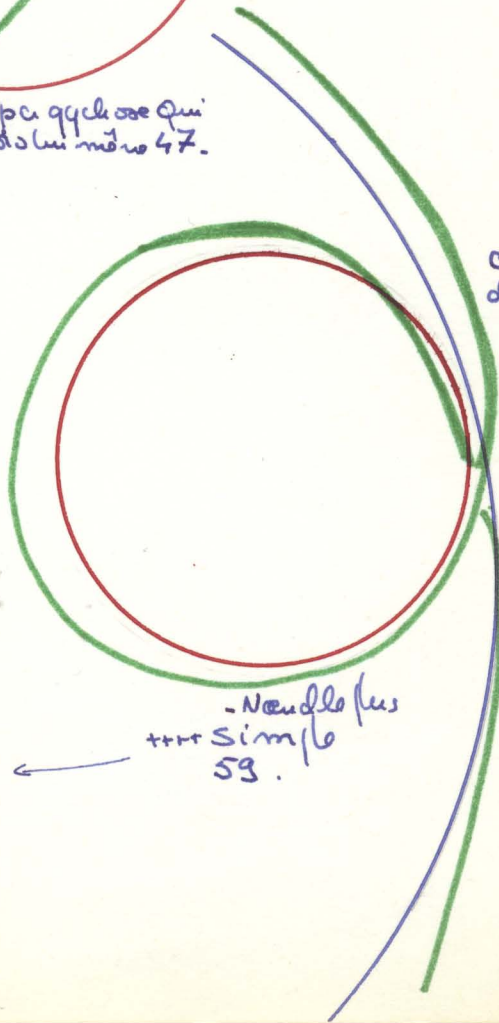 pa qqchose qui
lui même 47.
- Nœud le plus
++++ simple
59.